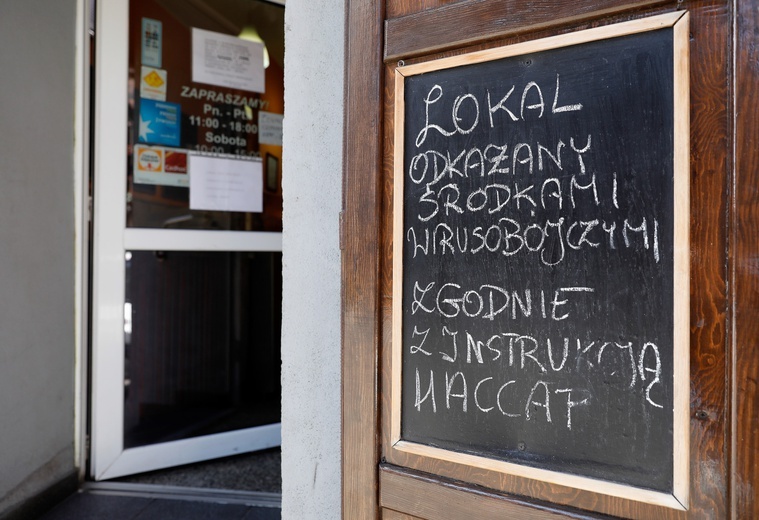 ZAPRASZAMY!
Pn. - Pt
11:00 - 18:00
Sobota
LOKAL
ODKAŻANY
ŚRODKAMI
WIRUSOBÓJCZYMI
ZGODNIE
Z INSTRUKCJĄ
HACCAP